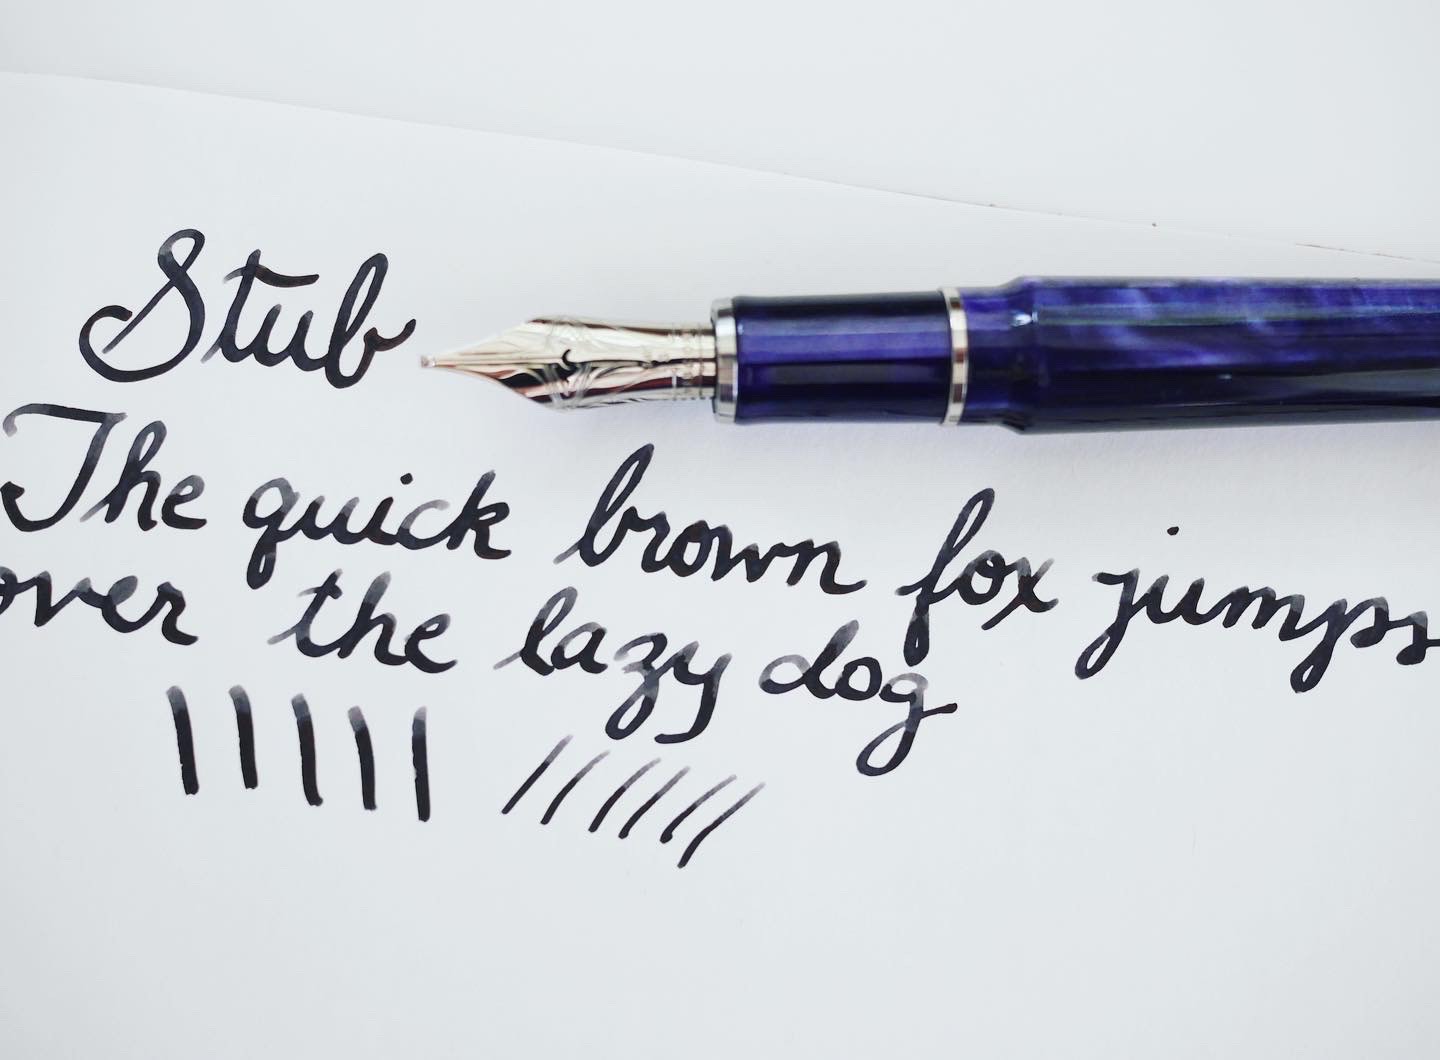 Stub
The quick brown fox jumps
over the lazy dog